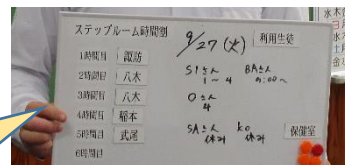 ステップルーム時間割
9/27(火)
利用生徒
1時間目 諏訪
2時間目 八木
3時間目 八木
4時間目 稲本
5時間目 武尾
6時間目
S1さん
1~4
BAさん
Oさん
4
SAさん
休み
ko
休み
保健室